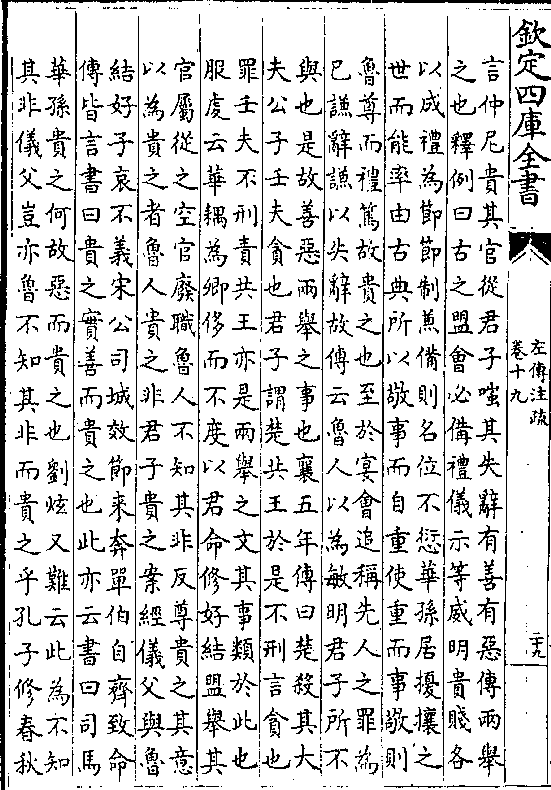 欽定四庫全書
左傳注疏
卷十九
二十九
言仲尼貴其官從君子嗤其失辭有善有惡傳兩舉
之也釋例曰古之盟會必備禮儀示等威明貴賤各
以成禮為節節制兼備則名位不愆華孫居擾攘之
世而能率由古典所以敬事而自重使重而事敬則
魯尊而禮篤故貴之也至於宴會追稱先人之罪為
已謙辭謙以失辭故傳云魯人以為敏明君子所不
與也是故善惡兩舉之事也襄五年傳曰楚殺其大
夫公子壬夫貪也君子謂楚共王於是不刑言貪也
罪壬夫不刑責共王亦是兩舉之文其事類於此也
服虔云華耦為卿侈而不度以君命修好結盟舉其
官屬從之空官廢職魯人不知其非反尊貴之其意
以為貴之者魯人貴之非君子貴之案經儀父與魯
結好子哀不義宋公司城效節來奔單伯自齊致命
傳皆言書曰貴之實善而貴之也此亦云書曰司馬
華孫貴之何故惡而貴之也劉炫又難云此為不知
其非儀父豈亦魯不知其非而貴之乎孔子修春秋